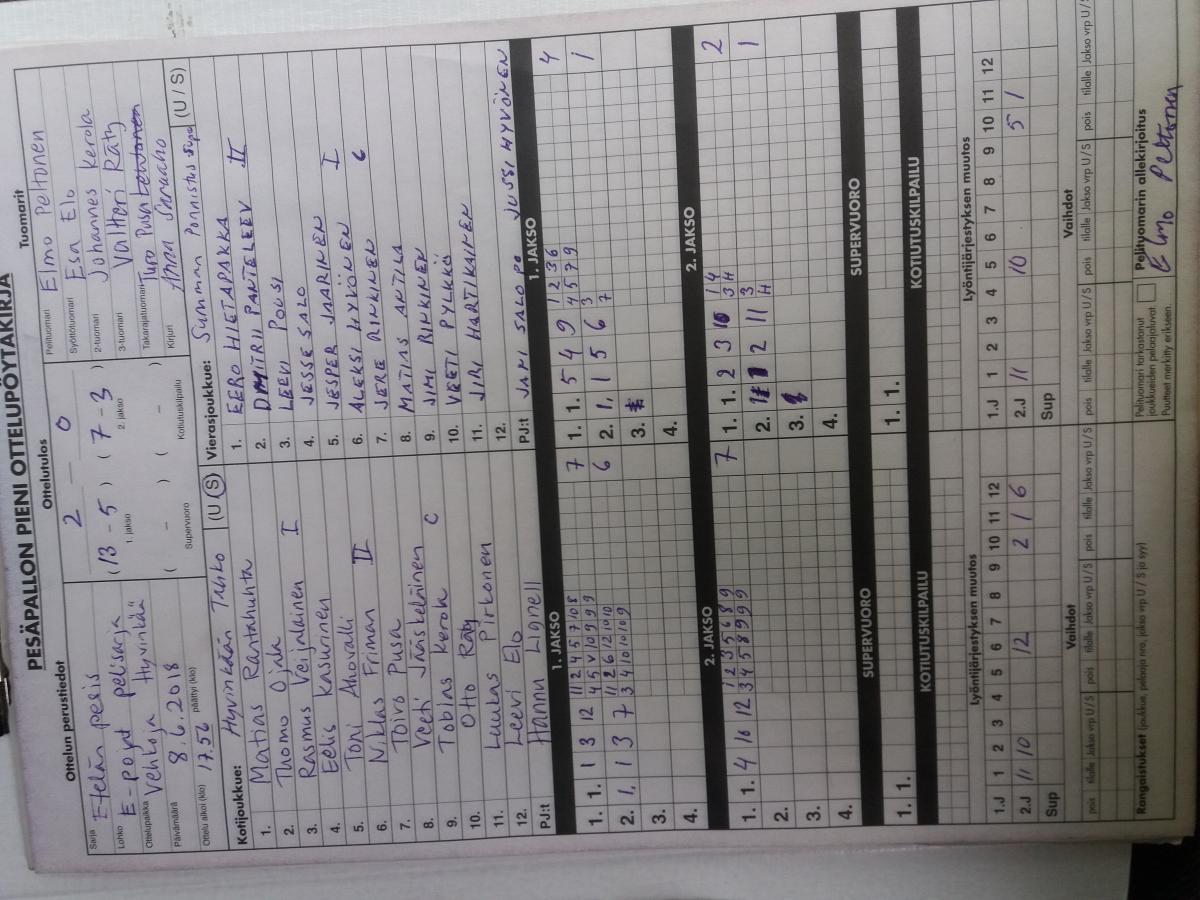 PESÄPALLON PIENI OTTELUPÖYTÄKIRJA
Ottelun perustiedot
Sarja Etelän pesis
Lohko E-pojat pelisarja
Ottelupaikka Vehkoja Hyvinkää
Päivämäärä 8.6.2018
Ottelu alkoi (klo) 17.56 päättyi (klo)
Ottelutulos
2 – 0
(13 - 5) (7 - 3)
1. jakso 2. jakso
( - ) ( - )
Supervuoro Kotiutuskilpailu
Tuomarit
Pelituomari Elmo Peltonen
Syöttötuomari Esa Elo
2-tuomari Johannes Kerola
3-tuomari Valtteri Räty
Takarajatuomari Turo Pusa
Kirjuri Anna Sanaaho
Kotijoukkue: Hyvinkään Tahko (U / S)
1. Matias Rantahuhta
2. Thomo Ojala I
3. Rasmus Veijalainen
4. Eelis Kasurinen
5. Toni Ahovalli II
6. Niklas Friman
7. Toivo Pusa
8. Veeti Jääskeläinen C
9. Tobias Kerola
10. Otto Räty
11. Luukas Pirkonen
12. Leevi Elo
PJ:t Hannu Lignell
Vierasjoukkue: Summan Ponnistus (U / S)
1. EERO HIETAPAKKA
2. DMITRII PANTELEEV II
3. LEEVI POUSI
4. JESSE SALO
5. JESPER JAARINEN I
6. ALEKSI HYVÖNEN
7. JERE RINKINEN
8. MATIAS ANTTILA
9. JIMI RINKINEN
10. VEETI PYLKKÖ
11. JIRI HARTIKAINEN
12.
PJ:t JAMI SALOPO JUSSI HYVÖNEN
1. JAKSO
1. 1. 1 3 12 7
2. 1, 1 3 7 6
3.
4.
1. JAKSO
1. 1. 5 4 9 4
2. 1, 1 5 6 1
3.
4.
2. JAKSO
1. 1. 4 10 12 7
2.
3.
4.
2. JAKSO
1. 1. 2 3 2
2. 2 11 1
3.
4.
SUPERVUORO
1. 1.
SUPERVUORO
1. 1.
KOTIUTUSKILPAILU
KOTIUTUSKILPAILU
Lyöntijärjestyksen muutos
1 2 3 4 5 6 7 8 9 10 11 12
1.J
2.J 11 10 12 2 1 6
Sup
Lyöntijärjestyksen muutos
1 2 3 4 5 6 7 8 9 10 11 12
1.J
2.J 11 10 5 1
Sup
Vaihdot
pois tilalle Jakso vrp U / S pois tilalle Jakso vrp U / S pois tilalle Jakso vrp U / S
Vaihdot
pois tilalle Jakso vrp U / S pois tilalle Jakso vrp U / S pois tilalle Jakso vrp U / S
Rangaistukset (joukkue, pelaaja nro, jakso vrp U / S ja syy)
Pelituomari tarkastanut
joukkueiden pelaajaluvat
Puutteet merkitty erikseen.
Pelituomarin allekirjoitus
Elmo Peltonen